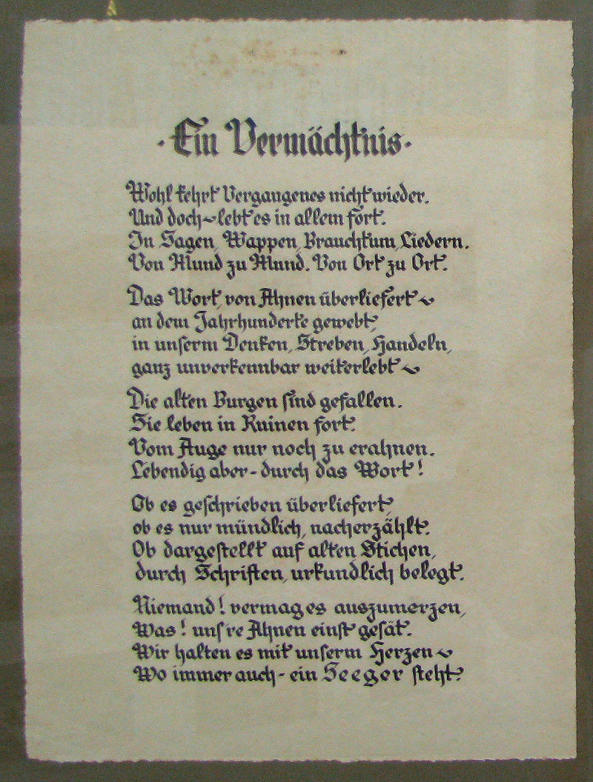 · Ein Vermächtnis ·
Wohl kehrt Vergangenes nicht wieder.
Und doch ~ lebt es in allem fort.
In Sagen, Wappen, Brauchtum, Liedern.
Von Mund zu Mund. Von Ort zu Ort.
Das Wort, von Ahnen überliefert ~
an dem Jahrhunderte gewebt,
in unserm Denken, Streben, Handeln,
ganz unverkennbar weiterlebt ~
Die alten Burgen sind gefallen.
Sie leben in Ruinen fort.
Vom Auge nur noch zu erahnen.
Lebendig aber - durch das Wort!
Ob es geschrieben überliefert,
ob es nur mündlich, nacherzählt.
Ob dargestellt auf alten Stichen,
durch Schriften, urkundlich belegt.
Niemand! vermag es auszumerzen,
Was! uns're Ahnen einst gesät.
Wir halten es mit unserm Herzen ~
Wo immer auch - ein Seeger steht.